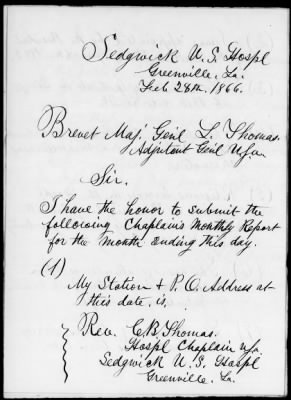 Sedgwick U.S. Hospl
Greenville, La.
Feb. 28th. 1866.
Brevet Maj. Genl L. Thomas.
Adjutant Genl U.S.A.
Sir.
I have the honor to submit the
following Chaplain's Monthly Report
for the month ending this day.
(1)
My Station & P.O. Address at
this date, is.
Rev. C.B. Thomas.
Hospl Chaplain U.S.
Sedgwick U.S. Hospl
Greenville, La.